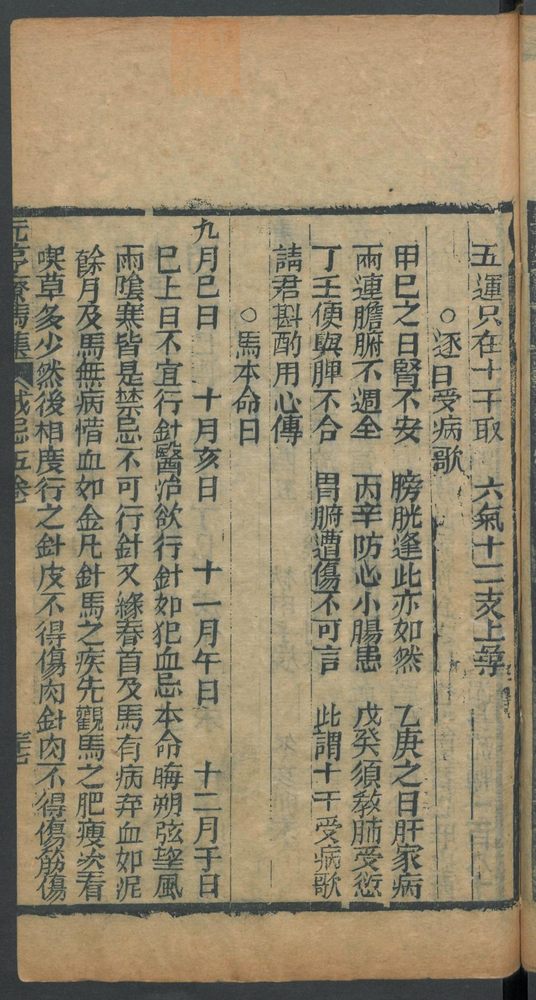 五運只在十干取　六氣十二支上尋
○逐日受病歌
甲巳之日腎不安　膀胱逢此亦如然　乙庚之日肝家病
兩連膽腑不週全　丙辛防心小腸患　戊癸須教肺受愆
丁壬便與脾不合　胃腑遭傷不可言　此謂十干受病歌
請君斟酌用心傳
○馬本命日
九月巳日　十月亥日　十一月午日　十二月子日
巳上日不宜行針醫治欲行針如犯血忌本命晦朔弦望風
雨陰寒皆是禁忌不可行針又緣春首及馬有病弃血如泥
餘月及馬無病惜血如金凡針馬之疾先觀馬之肥瘦次看
喫草多少然後相度行之針皮不得傷肉針肉不得傷筋傷
元亨療馬集